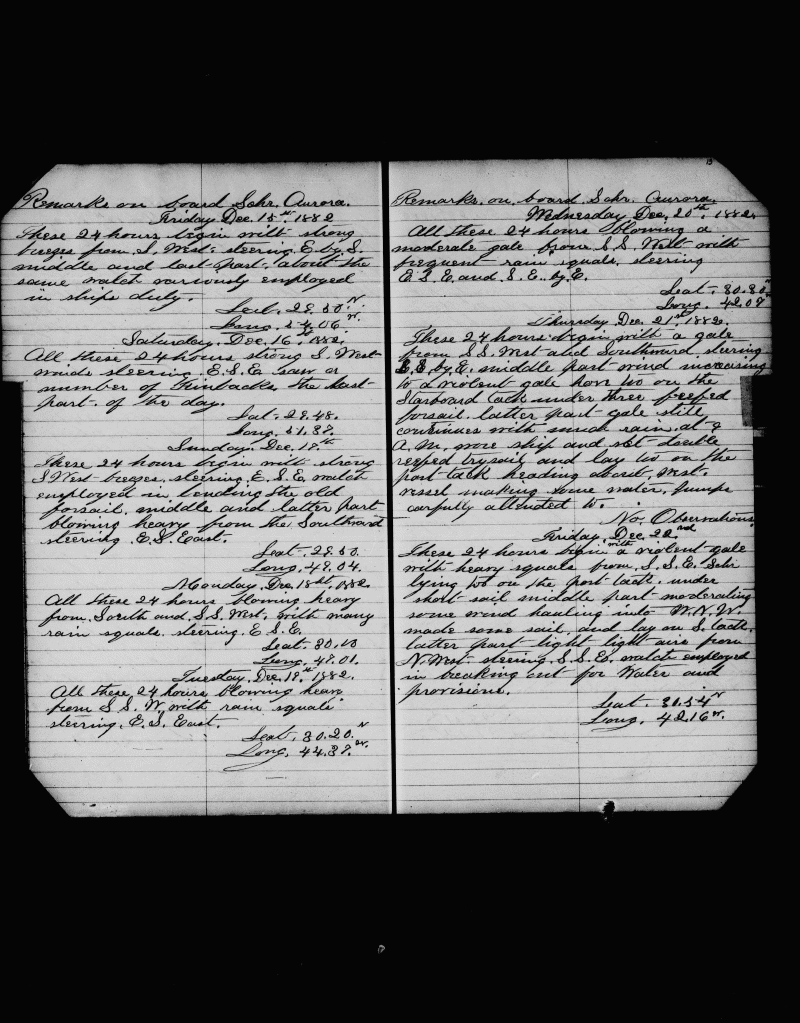 Remarks on board Schr. Aurora.
Friday Dec. 15th 1882
These 24 hours begin with strong
breezes from S. West. steering E. by S.
middle and last part. about the
same watch variously employed
in ships duty.
Lat. 29.50 N.
Long. 54.06. W.
Saturday. Dec. 16th 1882.
All these 24 hours strong S. West
winds steering. E.S.E. saw a
number of Finbacks. the last
part. of the day.
Lat. 29.48.
Long. 51.37.
Sunday. Dec. 17th
These 24 hours begin with strong
S West breezes. steering. E.S.E. watch
employed in bending the old
forsail. middle and latter part
blowing heavy from the Southward
steering. E.S. East.
Lat. 29.50.
Long. 49.04.
Monday. Dec. 18th. 1882
All these 24 hours blowing heavy
from South and S.S. West. with many
rain squals. steering. E S.E.
Lat. 30.10
Long. 47.01.
Tuesday. Dec. 19th. 1882.
All these 24 hours blowing heavy
from S S. W. with rain squals
steering. E. S. East.
Lat. 30.20. N
Long. 44.37. W.
13
Remarks. on. board. Schr. Aurora.
Wednesday Dec. 20th. 1882.
All these 24 hours blowing a
moderate gale from S.S. West with
frequent rain squals. steering
E.S.E. and S.E. by E.
Lat. 30.30. N
Long. 42.07 W
Thursday. Dec. 21st. 1882.
These 24 hours begin with a gale
from S.S. West and Southward. steering
E.S. by E. middle part wind increasing
to a violent gale hove to on the
Starboard tack under three reefed
forsail. latter part gale still
continues with much rain. at 8
A.M. wore ship and set double
reefed trysail and lay to on the
port tack heading about, West.
vessel making some water, pumps
carfully attended to.
No. Observations
Friday. Dec. 22nd
These 24 hours begin with a violent gale
with heavy squals from. S.S.E. Schr
lying to on the port tack. under
short sail middle part moderating
some wind hauling into W.N.W.
made some sail. and lay on S. tack.
latter part light light airs from
N. West. steering. S.S.E. watch employed
in breaking out for Water and
provisions.
Lat. 30.54 N
Long. 42.16 W.